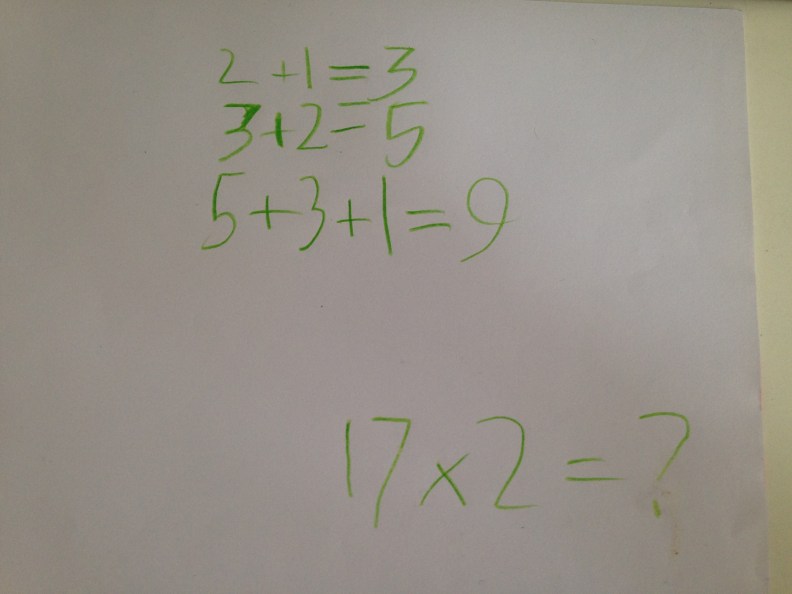 2+1=3
3+2=5
5+3+1=9
17×2=?